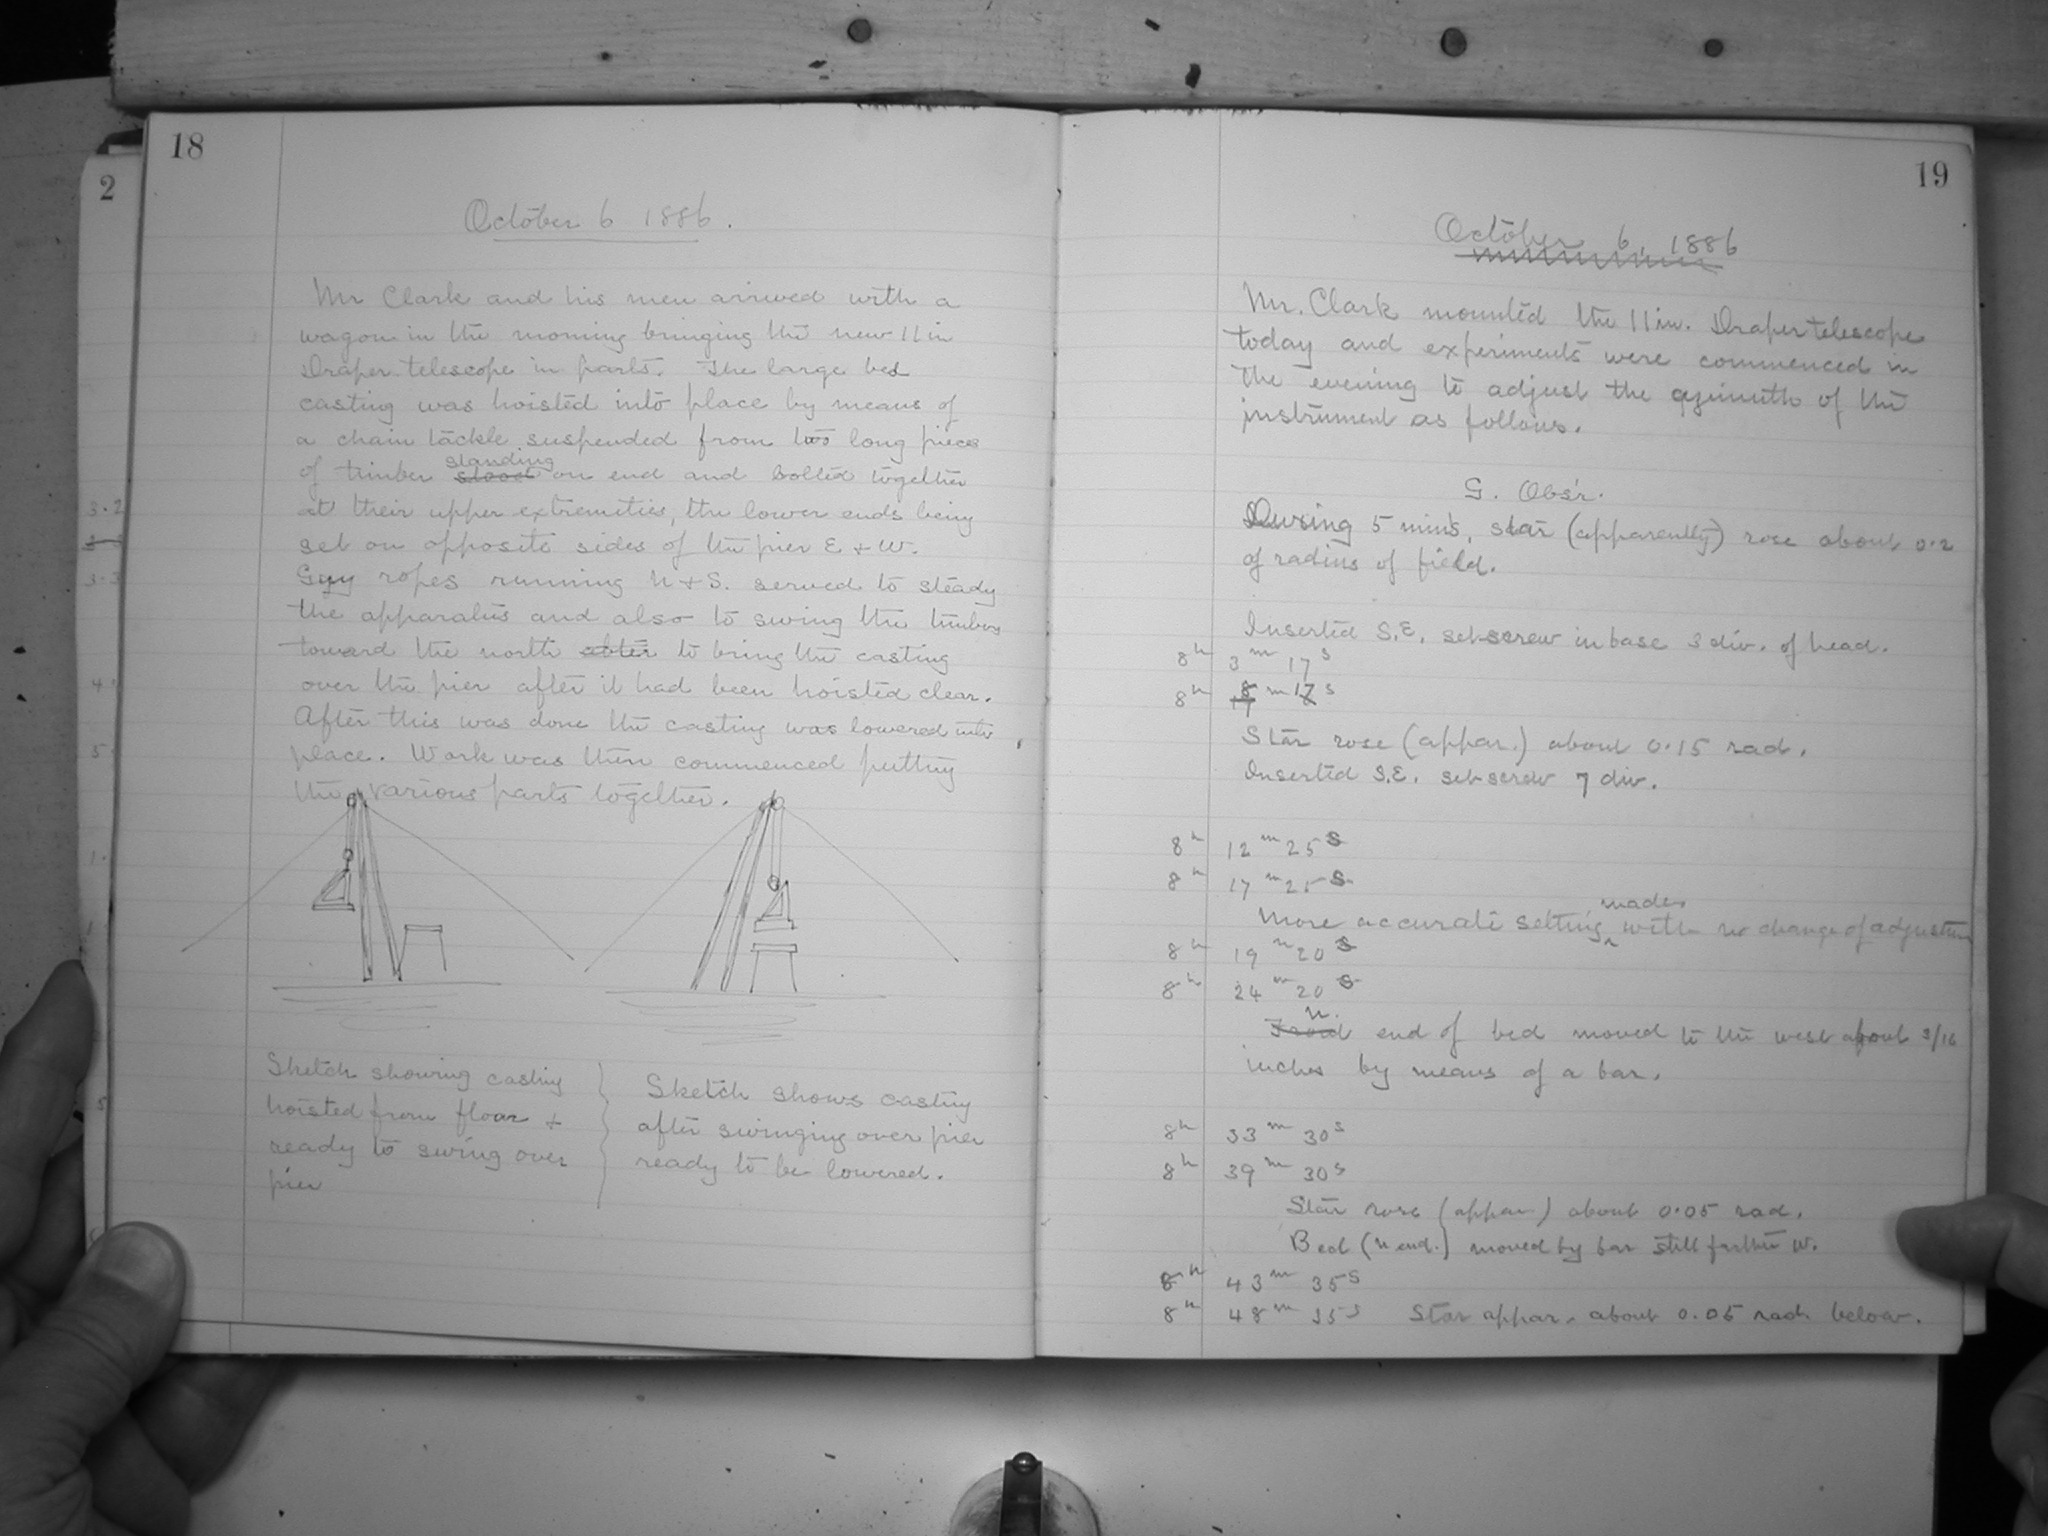 18
October 6 1886.
Mr Clark and his men arrived with a
wagon in the morning bringing the new 11 in
Draper telescope in parts. The large bed
casting was hoisted into place by means of
a chain tackle suspended from two long pieces
of timber stood standing on end and bolted together
at their upper extremities, the lower ends being
set on opposite sides of the pier E & W.
Guy ropes running N & S. served to steady
the apparatus and also to swing the timbers
toward the north after to bring the casting
over the pier after it had been hoisted clear.
After this was done the casting was lowered into
place. Work was then commenced putting
the various parts together.
Sketch showing casting
hoisted from floor &
ready to swing over
pier
Sketch shows casting
after swinging over pier
ready to be lowered.
19
October 6, 1886
Mr. Clark mounted the 11 in. Draper telescope
today and experiments were commenced in
the evening to adjust the azimuth of the
instrument as follows.
G. Obs'r.
During 5 mins, star (apparently) rose about 0.2
of radius of field.
Inserted S.E. set-screw in base 3 div. of head.
8h 3m 17s
8h 8m 17s
Star rose (appar.) about 0.15 rad.
Inserted S.E. set-screw 7 div.
8h 12m 25s
8h 17m 25s
More accurate setting made with no change of adjustment
8h 19m 20s
8h 24m 20s
N. end of bed moved to the west about 3/16
inches by means of a bar.
8h 33m 30s
8h 39m 30s
Star rose (appar) about 0.05 rad.
Bed (N end.) moved by bar still further W.
8h 43m 35s
8h 48m 35s Star appar. about 0.05 rad. below.
2
3.2
3.3
4
5
1.
1
5